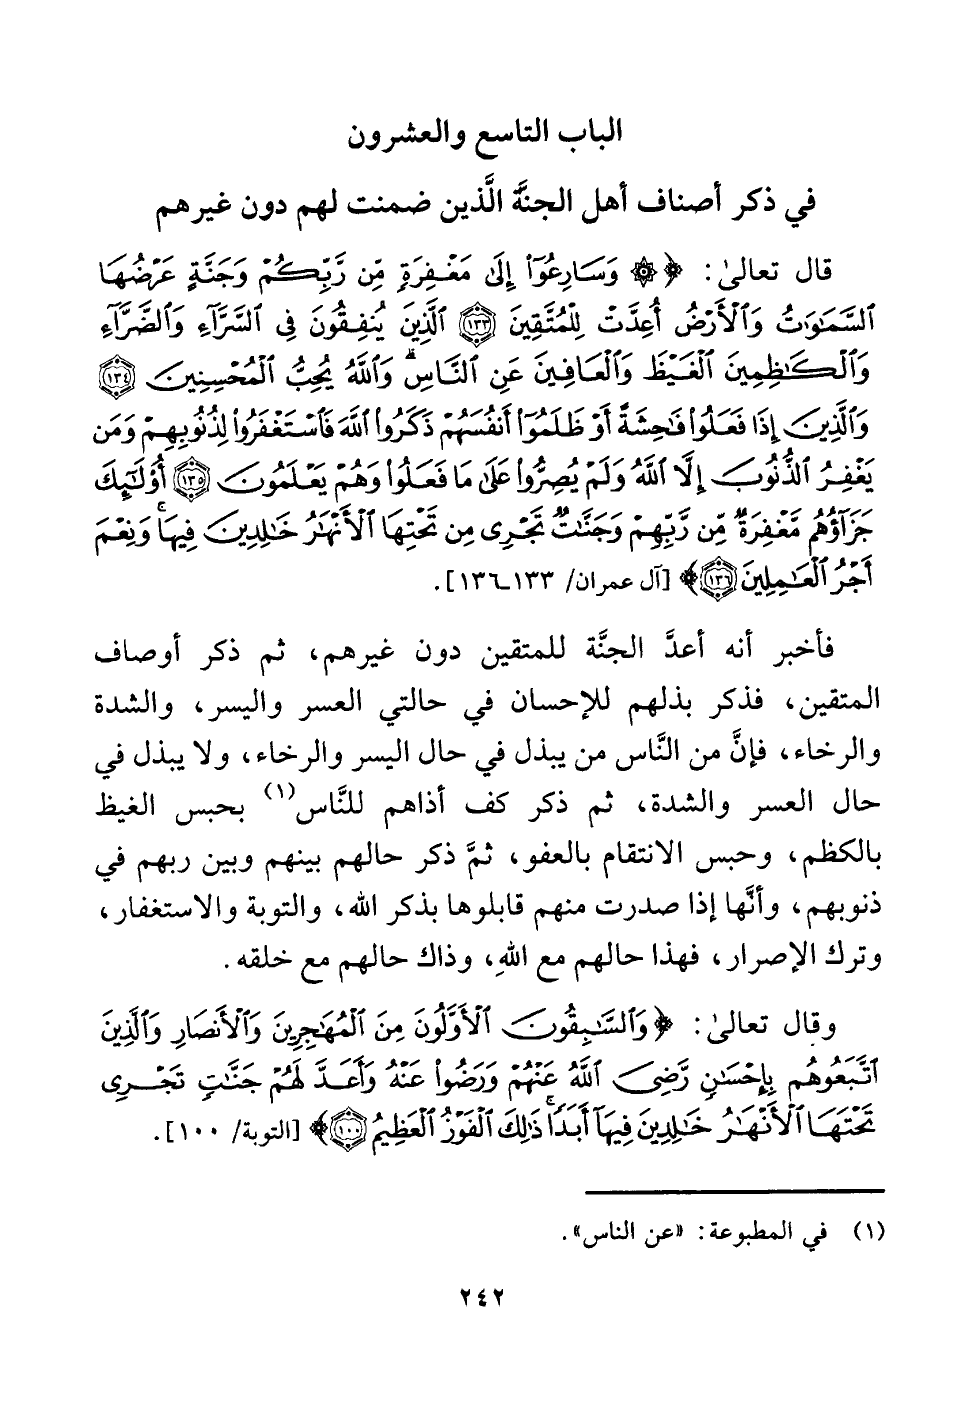 الباب التاسع والعشرون
في ذكر أصناف أهل الجنَّة الَّذين ضمنت لهم دون غيرهم
قال تعالىٰ: ﴿۞ وَسَارِعُوٓا۟ إِلَىٰ مَغْفِرَةٍ مِّن رَّبِّكُمْ وَجَنَّةٍ عَرْضُهَا
ٱلسَّمَٰوَٰتُ وَٱلْأَرْضُ أُعِدَّتْ لِلْمُتَّقِينَ ١٣٣ ٱلَّذِينَ يُنفِقُونَ فِى ٱلسَّرَّآءِ وَٱلضَّرَّآءِ
وَٱلْكَٰظِمِينَ ٱلْغَيْظَ وَٱلْعَافِينَ عَنِ ٱلنَّاسِ ۗ وَٱللَّهُ يُحِبُّ ٱلْمُحْسِنِينَ ١٣٤
وَٱلَّذِينَ إِذَا فَعَلُوا۟ فَٰحِشَةً أَوْ ظَلَمُوٓا۟ أَنفُسَهُمْ ذَكَرُوا۟ ٱللَّهَ فَٱسْتَغْفَرُوا۟ لِذُنُوبِهِمْ وَمَن
يَغْفِرُ ٱلذُّنُوبَ إِلَّا ٱللَّهُ وَلَمْ يُصِرُّوا۟ عَلَىٰ مَا فَعَلُوا۟ وَهُمْ يَعْلَمُونَ ١٣٥ أُو۟لَٰٓئِكَ
جَزَآؤُهُم مَّغْفِرَةٌ مِّن رَّبِّهِمْ وَجَنَّٰتٌ تَجْرِى مِن تَحْتِهَا ٱلْأَنْهَٰرُ خَٰلِدِينَ فِيهَا ۚ وَنِعْمَ
أَجْرُ ٱلْعَٰمِلِينَ ١٣٦﴾ [آل عمران/ ١٣٣ـ١٣٦].
فأخبر أنه أعدَّ الجنَّة للمتقين دون غيرهم، ثم ذكر أوصاف
المتقين، فذكر بذلهم للإحسان في حالتي العسر واليسر، والشدة
والرخاء، فإنَّ من النَّاس من يبذل في حال اليسر والرخاء، ولا يبذل في
حال العسر والشدة، ثم ذكر كف أذاهم للنَّاس(١) بحبس الغيظ
بالكظم، وحبس الانتقام بالعفو، ثمَّ ذكر حالهم بينهم وبين ربهم في
ذنوبهم، وأنَّها إذا صدرت منهم قابلوها بذكر الله، والتوبة والاستغفار،
وترك الإصرار، فهذا حالهم مع اللهِ، وذاك حالهم مع خلقه.
وقال تعالىٰ: ﴿وَٱلسَّٰبِقُونَ ٱلْأَوَّلُونَ مِنَ ٱلْمُهَٰجِرِينَ وَٱلْأَنصَارِ وَٱلَّذِينَ
ٱتَّبَعُوهُم بِإِحْسَٰنٍ رَّضِىَ ٱللَّهُ عَنْهُمْ وَرَضُوا۟ عَنْهُ وَأَعَدَّ لَهُمْ جَنَّٰتٍ تَجْرِى
تَحْتَهَا ٱلْأَنْهَٰرُ خَٰلِدِينَ فِيهَآ أَبَدًا ۚ ذَٰلِكَ ٱلْفَوْزُ ٱلْعَظِيمُ ١٠٠﴾ [التوبة/ ١٠٠].
(١) في المطبوعة: «عن الناس».
٢٤٢